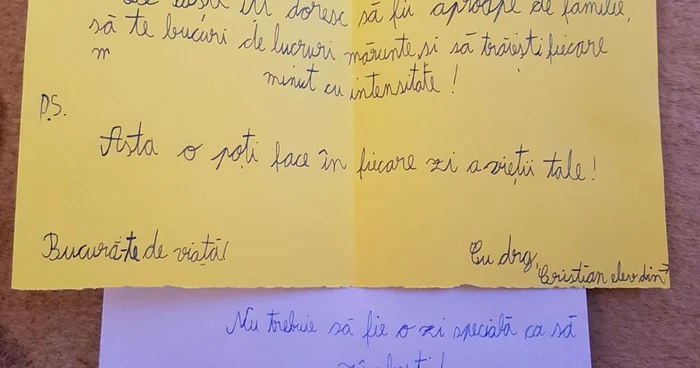 îți doresc să fii aproape de familie,
să te bucuri de lucruri mărunte, și să trăiești fiecare
m minut cu intensitate !
P.S.
Asta o poți face în fiecare zi a vieții tale !
Bucură-te de viață!
Cu drg,
Cristian elev din
Nu trebuie să fie o zi specială ca să